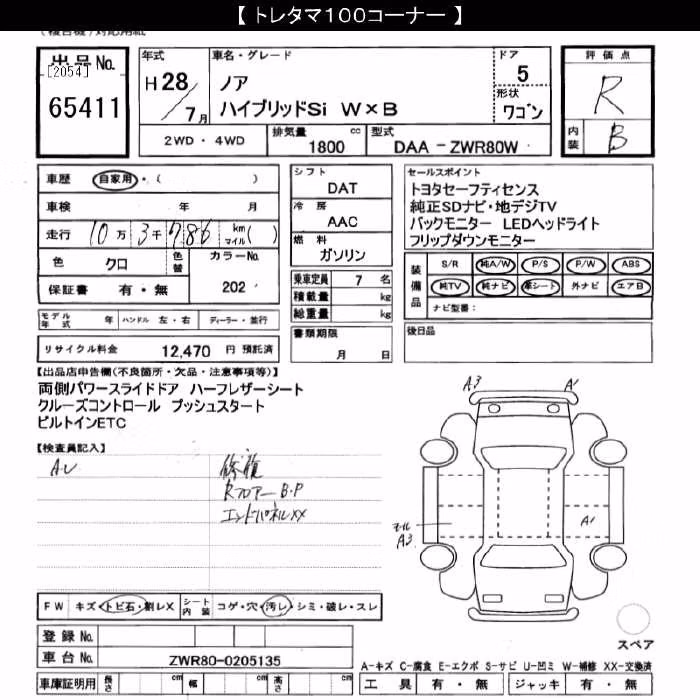 【 トレタマ100コーナー 】
(複合機)対応用紙
出品No.
[2054]
65411
年式
H 28/7月
車名・グレード
ノア
ハイブリッドSi W×B
ドア
5
形状
ワゴン
評価点
R
内装
B
2WD・4WD
排気量 1800 cc
型式 DAA-ZWR80W
車歴 自家用・( )
車検 年 月
走行 10万3千786 km マイル( )
色 クロ 色替
カラーNo. 202
保証書 有・無
シフト
DAT
冷房
AAC
燃料
ガソリン
乗車定員 7 名
積載量 kg
総重量 kg
書類期限
月 日
セールスポイント
トヨタセーフティセンス
純正SDナビ・地デジTV
バックモニター LEDヘッドライト
フリップダウンモニター
装備品
S/R 純A/W P/S P/W ABS
純TV 純ナビ 革シート 外ナビ エアB
ナビ型番：
後日品
モデル年式 年 ハンドル 左・右 ディーラー・並行
リサイクル料金 12,470 円 預託済
【出品店申告欄(不良箇所・欠品・注意事項等)】
両側パワースライドドア ハーフレザーシート
クルーズコントロール プッシュスタート
ビルトインETC
【検査員記入】
修復
RフロアーB.P
エンドパネルXX
A3 A'
モール
A3
A'
FW キズ・トビ石・割レX
シート内装 コゲ・穴・汚レ・シミ・破レ・スレ
登録No.
車台No. ZWR80-0205135
車庫証明用 長さ cm 幅 cm 高さ cm
スペア
A-キズ C-腐食 E-エクボ S-サビ U-凹ミ W-補修 XX-交換済
工具 有・無 ジャッキ 有・無